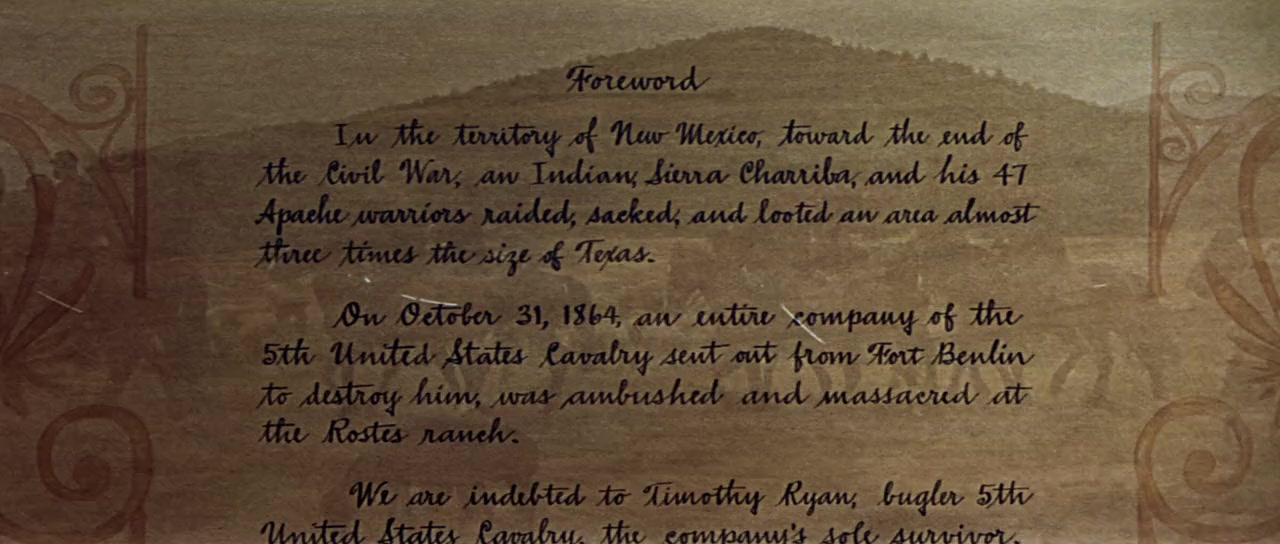 Foreword
In the territory of New Mexico, toward the end of
the Civil War, an Indian, Sierra Charriba, and his 47
Apache warriors raided, sacked, and looted an area almost
three times the size of Texas.
On October 31, 1864, an entire company of the
5th United States Cavalry sent out from Fort Benlin
to destroy him, was ambushed and massacred at
the Rostes ranch.
We are indebted to Timothy Ryan, bugler 5th
United States Cavalry, the company's sole survivor,